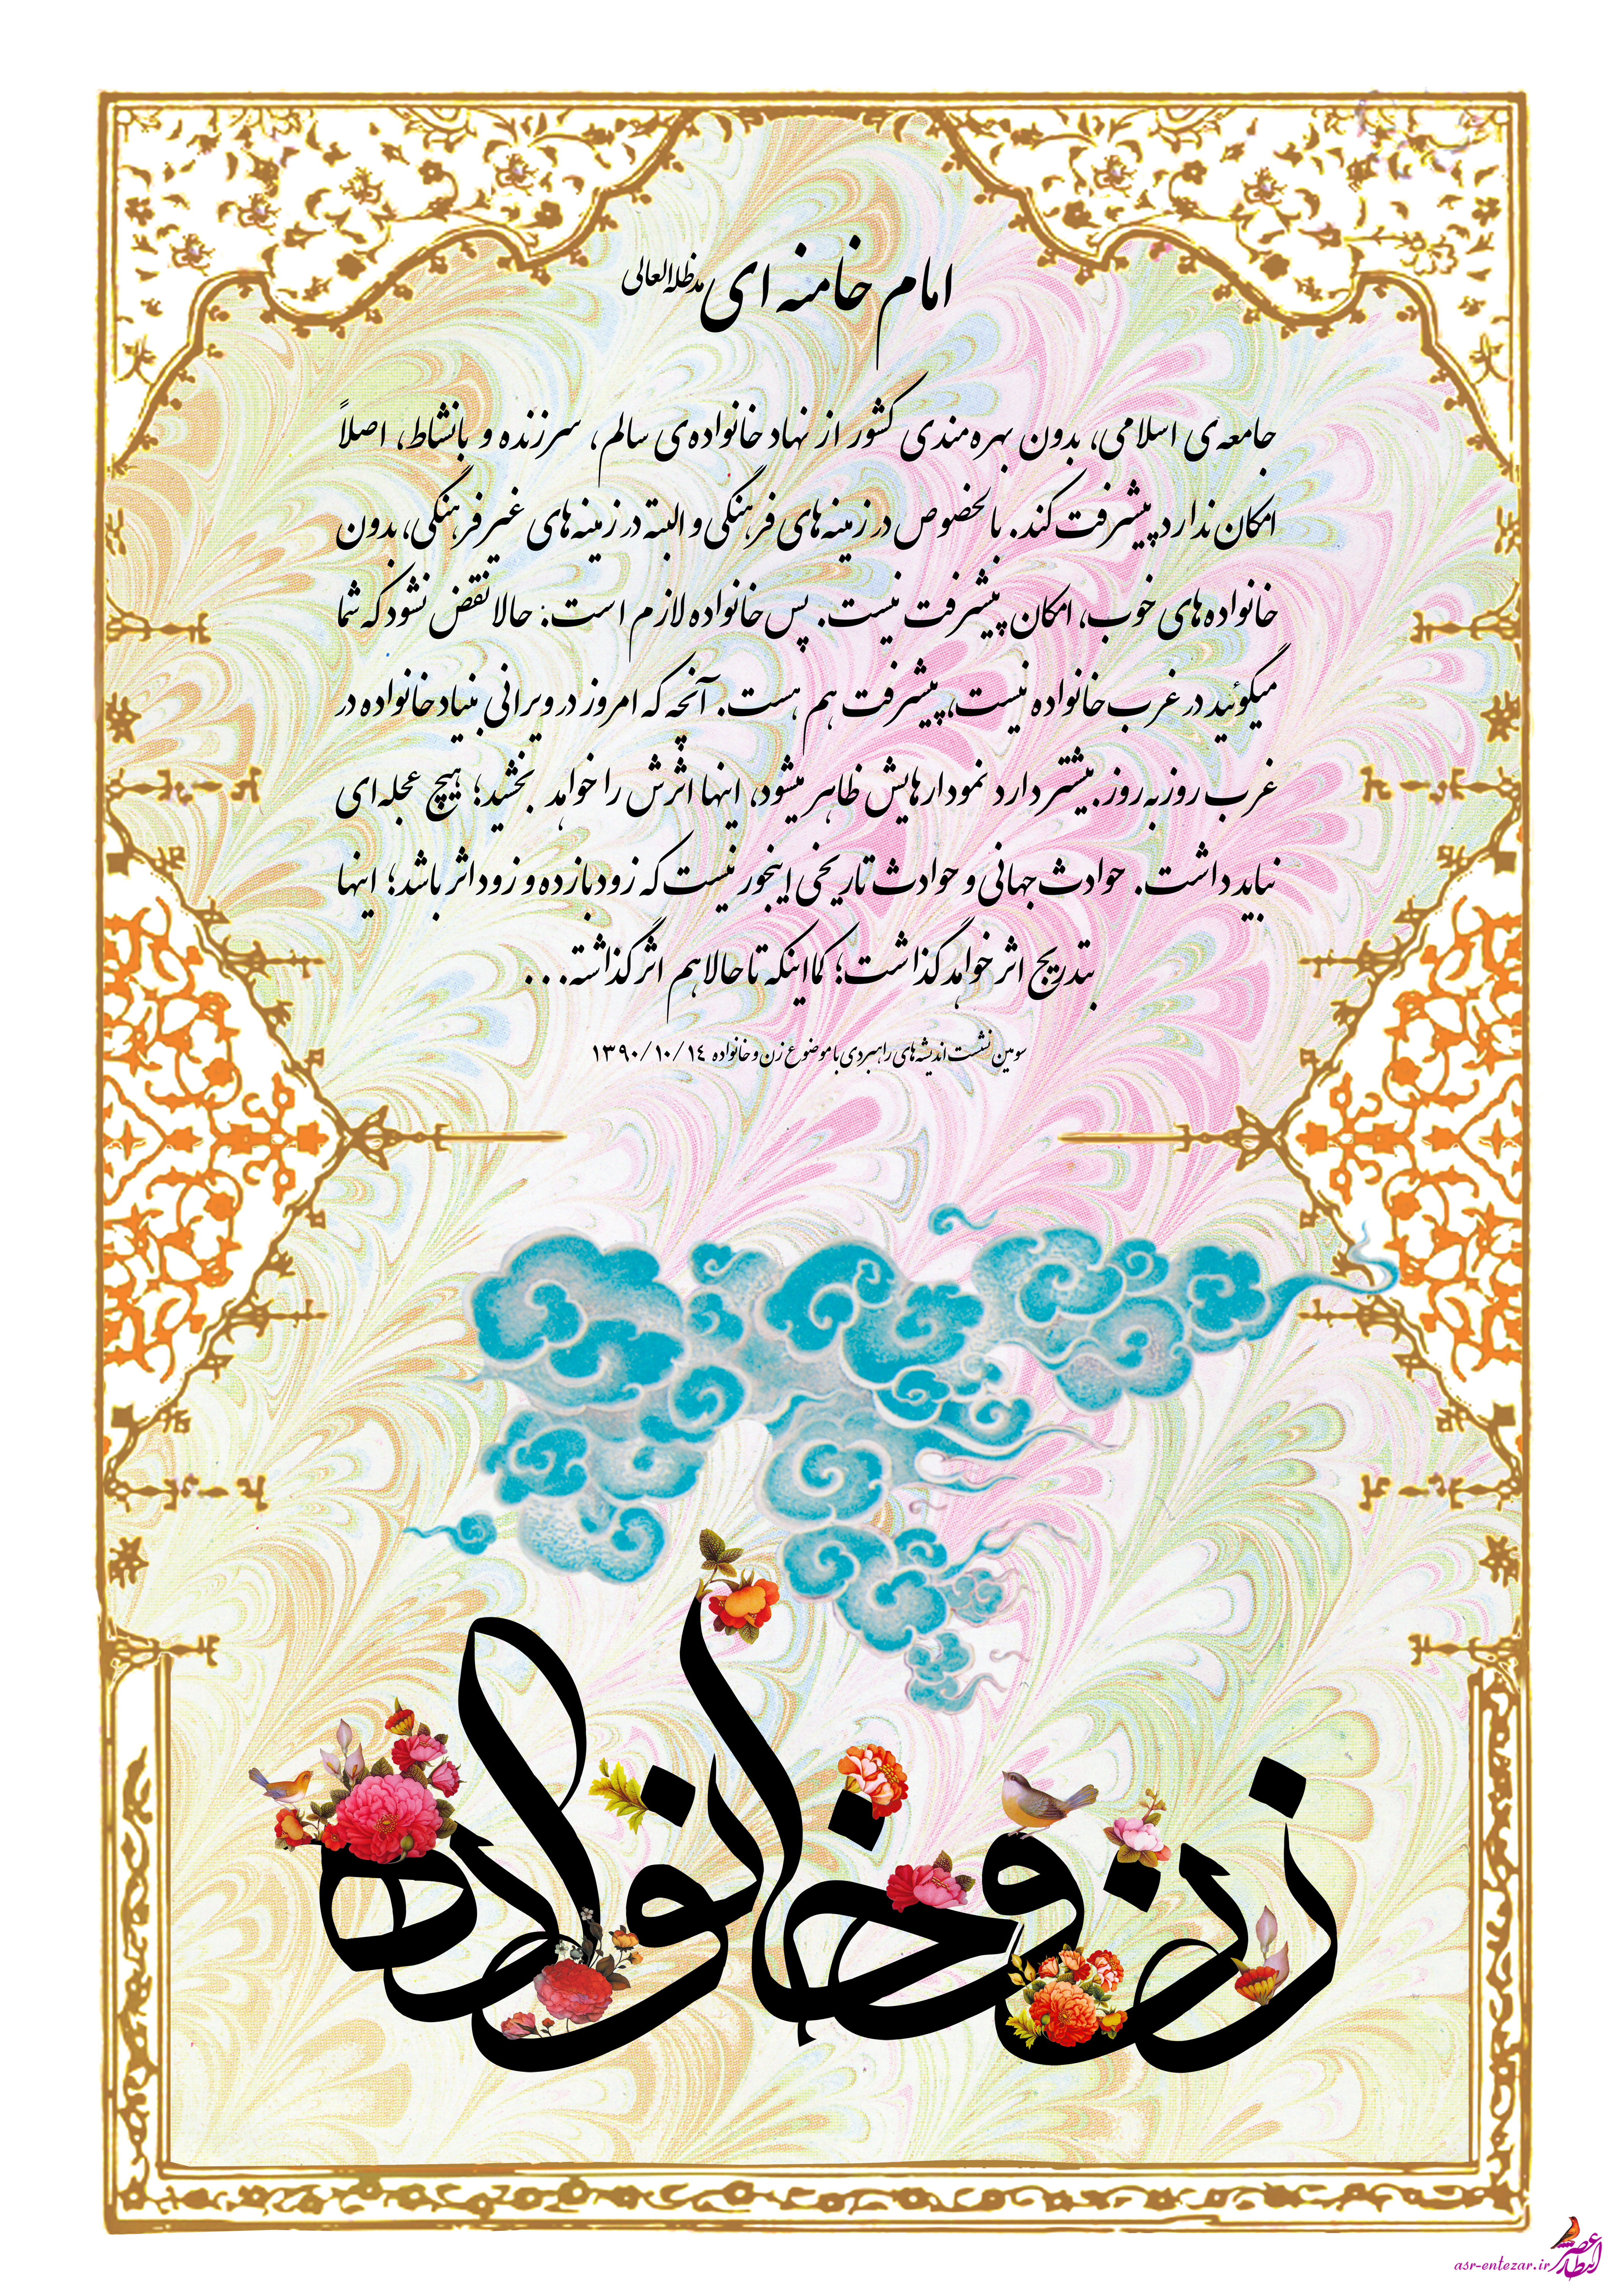 امام خامنه ای مدظله العالی
جامعه‌ی اسلامی، بدون بهره‌مندی کشور از نهاد خانواده‌ی سالم، سرزنده و بانشاط، اصلاً
امکان ندارد پیشرفت کند. بالخصوص در زمینه‌های فرهنگی و البته در زمینه‌های غیرفرهنگی، بدون
خانواده‌های خوب، امکان پیشرفت نیست. پس خانواده لازم است. حالا نقض نشود که شما
میگوئید در غرب خانواده نیست، پیشرفت هم هست. آنچه که امروز در ویرانی بنیاد خانواده در
غرب روزبه‌روز بیشتر دارد نمودارهایش ظاهر میشود، اینها اثرش را خواهد بخشید؛ هیچ عجله‌ای
نباید داشت. حوادث جهانی و حوادث تاریخی اینجور نیست که زود بازده و زود اثر باشد؛ اینها
بتدریج اثر خواهد گذاشت؛ کمااینکه تا حالا هم اثر گذاشته...
سومین نشست اندیشه‌های راهبردی با موضوع زن و خانواده ۱۳۹۰/۱۰/۱٤
زن و خانواده
عصر انتظار
asr-entezar.ir